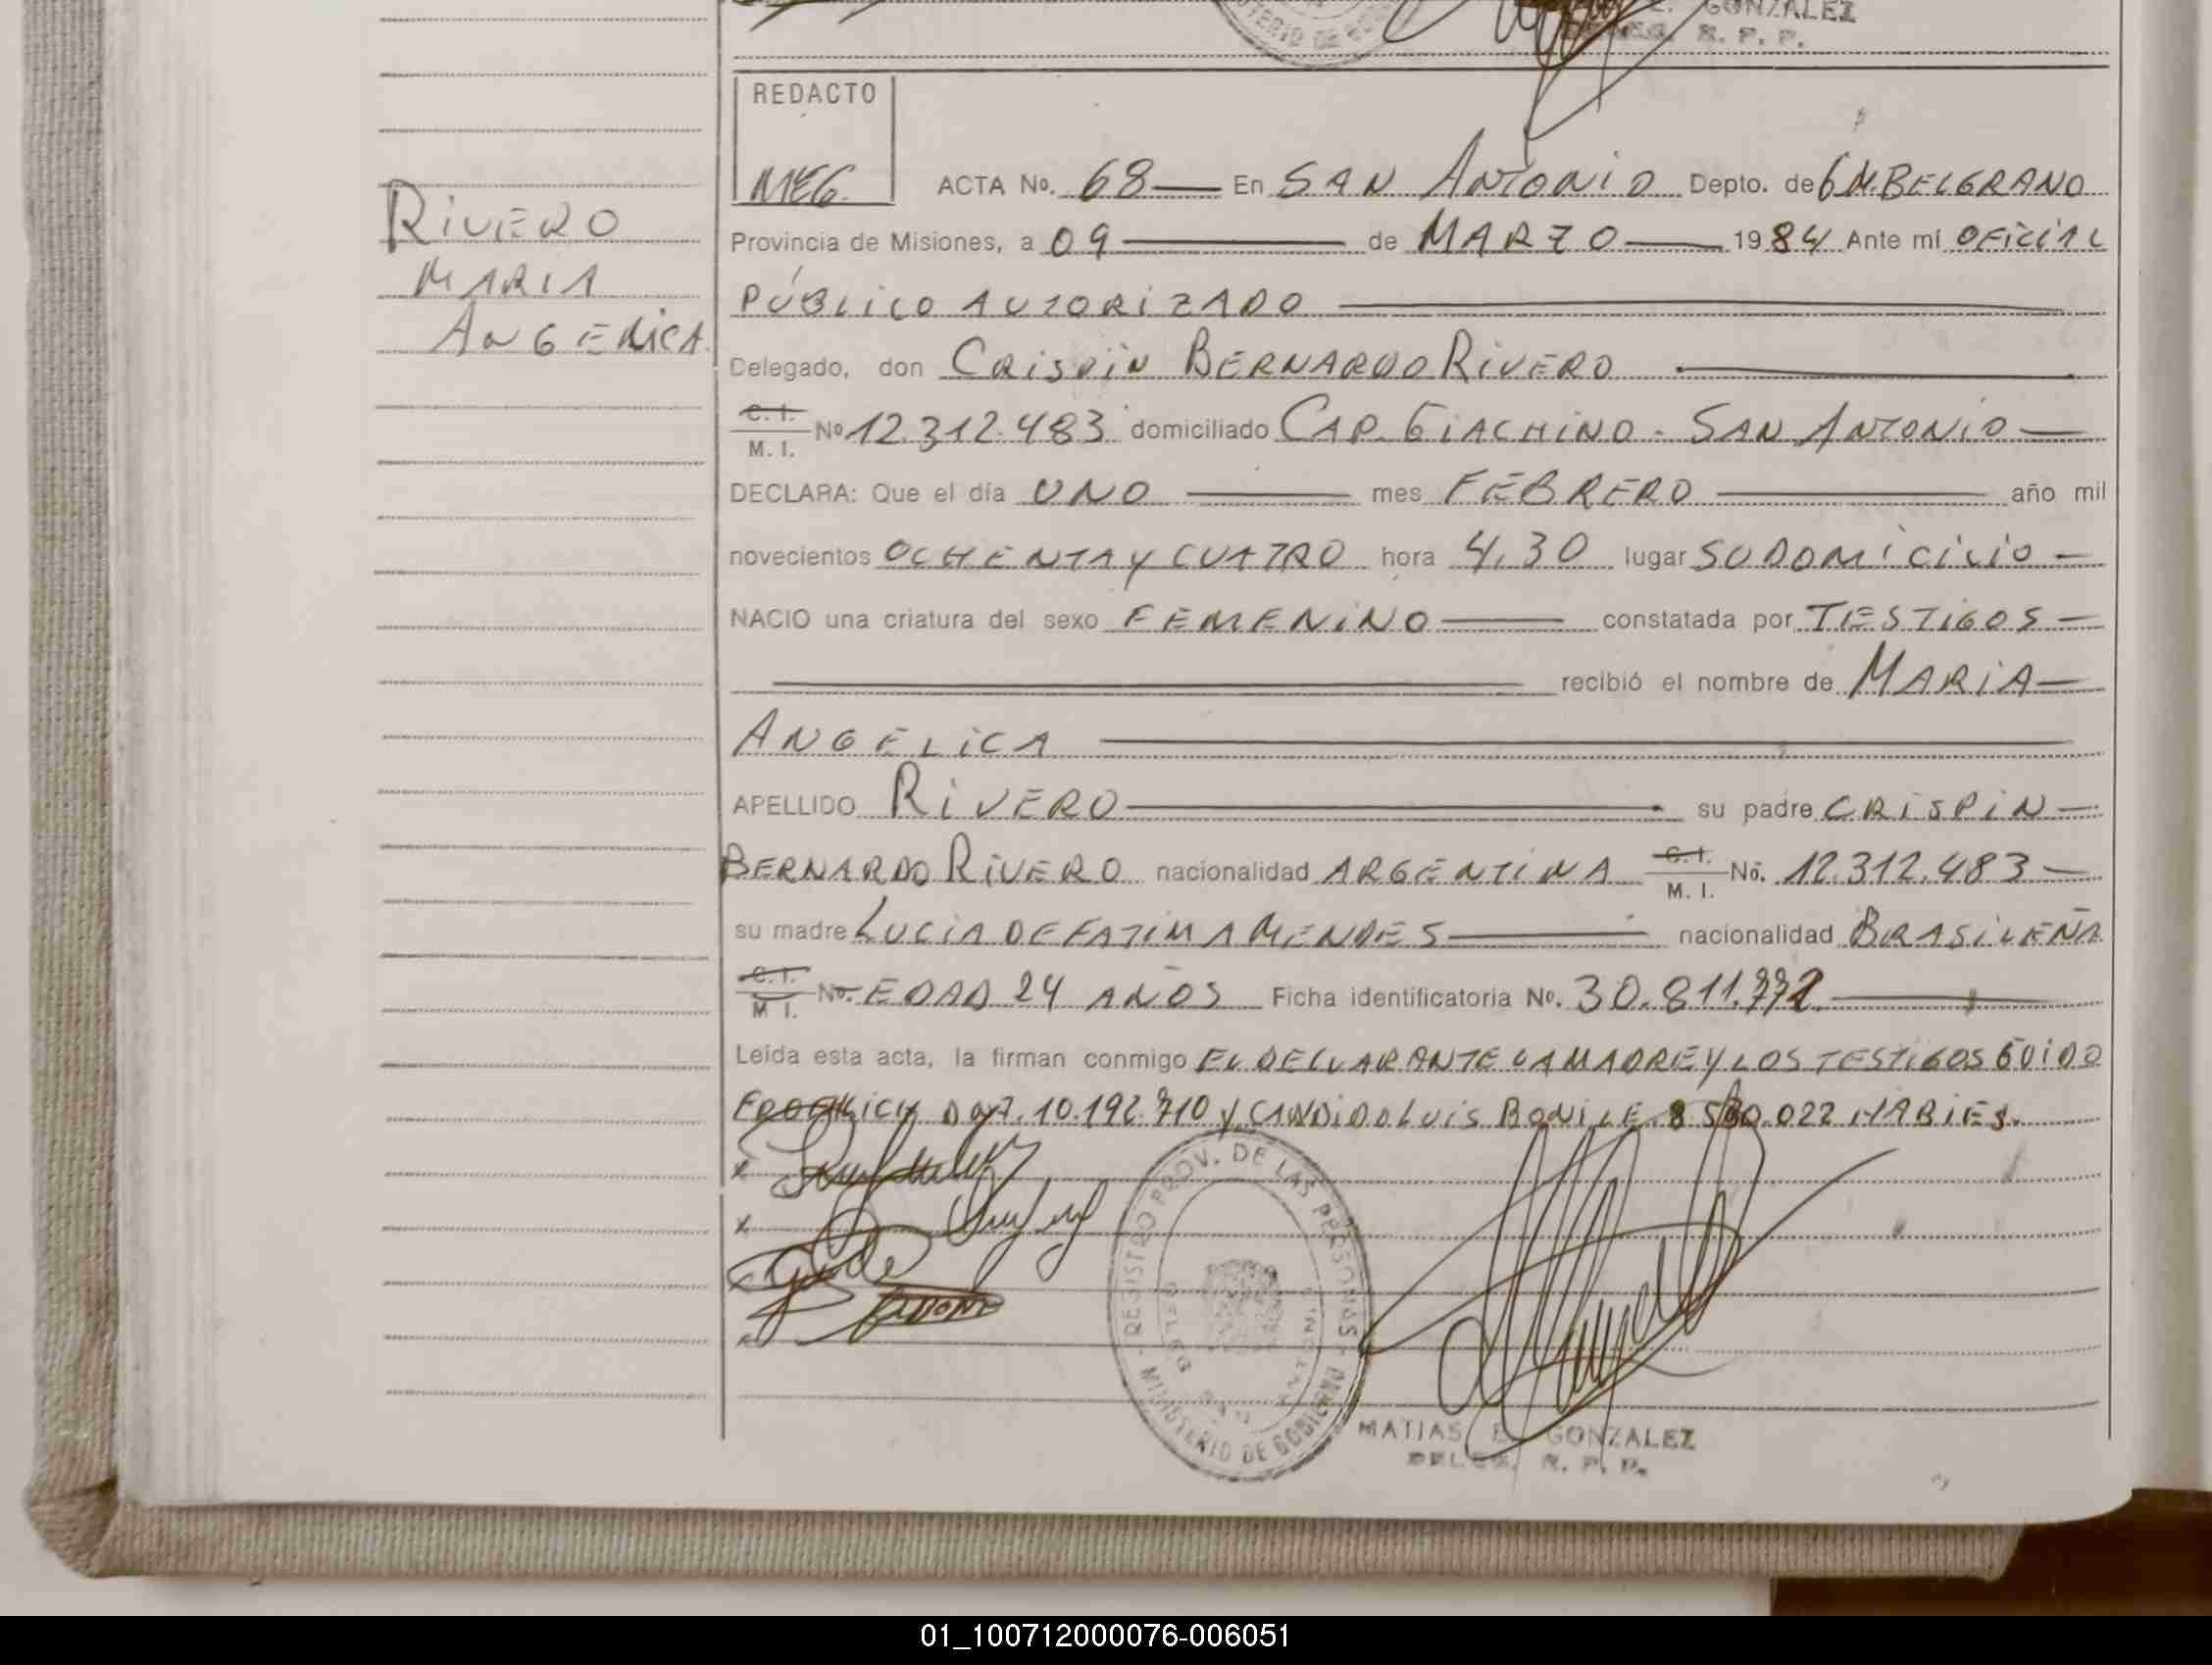 GONZALEZ
R. P. P.
REDACTO
MEG.
ACTA No. 68 En SAN ANTONIO Depto. de G N. BELGRANO
RIVERO
MARIA
ANGELICA
Provincia de Misiones, a 09 de MARZO 1984 Ante mí OFICIAL
PÚBLICO AUTORIZADO
Delegado, don CRISPIN BERNARDO RIVERO
C. I.
M. I. Nº 12.312.483 domiciliado CAP. GIACHINO - SAN ANTONIO
DECLARA: Que el día UNO mes FEBRERO año mil
novecientos OCHENTA Y CUATRO hora 4,30 lugar SU DOMICILIO
NACIO una criatura del sexo FEMENINO constatada por TESTIGOS
recibió el nombre de MARIA
ANGELICA
APELLIDO RIVERO su padre CRISPIN
BERNARDO RIVERO nacionalidad ARGENTINA C. I. M. I. No. 12.312.483
su madre LUCIA DE FATIMA MENDES nacionalidad BRASILEÑA
C. I. M I. No. EDAD 24 AÑOS Ficha identificatoria No. 30.811.772
Leída esta acta, la firman conmigo EL DECLARANTE LA MADRE Y LOS TESTIGOS GUIDO
10.192.710 Y CANDIDO LUIS 022 HABIES.
REGISTRO PROV. DE LAS PERSONAS
MINISTERIO DE GOBIERNO
DELEG. SAN ANTONIO
MATIAS E. GONZALEZ
DELEG. R. P. P.
01_100712000076-006051